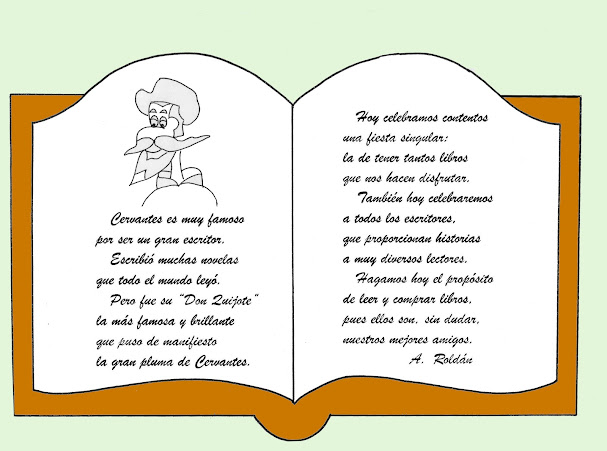 Cervantes es muy famoso
por ser un gran escritor.
Escribió muchas novelas
que todo el mundo leyó.
Pero fue su "Don Quijote"
la más famosa y brillante
que puso de manifiesto
la gran pluma de Cervantes.
Hoy celebramos contentos
una fiesta singular:
la de tener tantos libros
que nos hacen disfrutar.
También hoy celebraremos
a todos los escritores,
que proporcionan historias
a muy diversos lectores.
Hagamos hoy el propósito
de leer y comprar libros,
pues ellos son, sin dudar,
nuestros mejores amigos.
A. Roldán